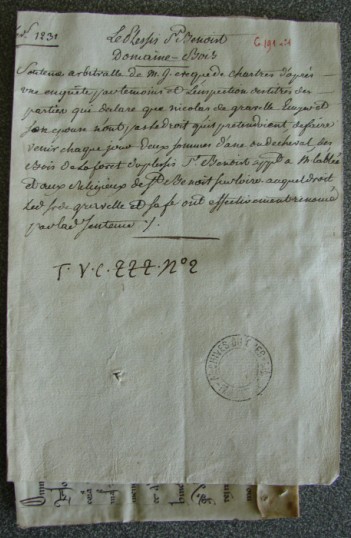 1231
Le Plessis St Benoist
Domaine - Bois
G 191
Sentence arbitralle de M. G. evêque de chartres d'après
une enquete par temoins et l'inspection des titres des
parties qui declare que nicolas de graville Ecuyer et
son epouse n'ont pas le droit qu'ils pretendoient de faire
venir chaque jour deux sommes d'ane ou de cheval des
Bois de la foret du plessis St Benoist appt a M l'abbé
et aux religieux de St Benoist sur loire, auquel droit
Led. sr de graville et sa fe ont effectivement renoncé
par lad. Sentence ./.
T. V. C. ZZZ. No 2
ARCHIVES DU